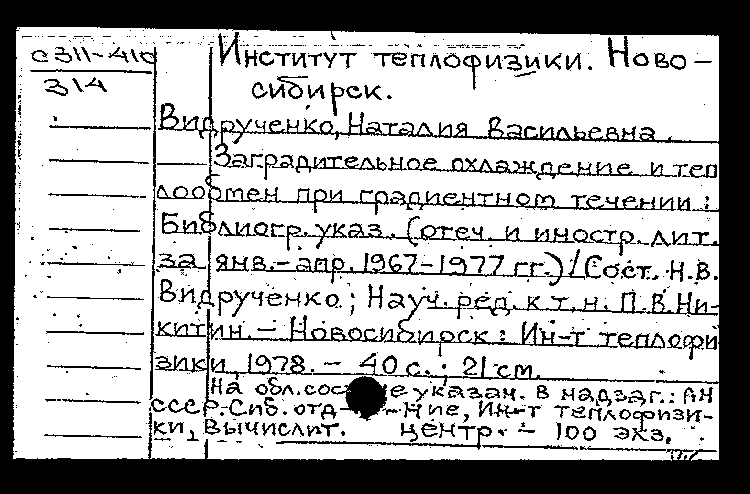 с311-410
314
Институт теплофизики. Ново-
сибирск.
Видрученко, Наталия Васильевна.
Заградительное охлаждение и теп
лообмен при градиентном течении:
Библиогр. указ. (отеч. и иностр. лит.
за янв.-апр. 1967-1977 гг.) / Сост. Н.В.
Видрученко; Науч. ред. к.т.н. П.В. Ни-
китин. - Новосибирск: Ин-т теплофи
зики, 1978. - 40 с.; 21 см.
На обл. указан. В надзаг.: АН
СССР. Сиб. отд-ние, Ин-т теплофизи-
ки, Вычислит. центр. - 100 экз.